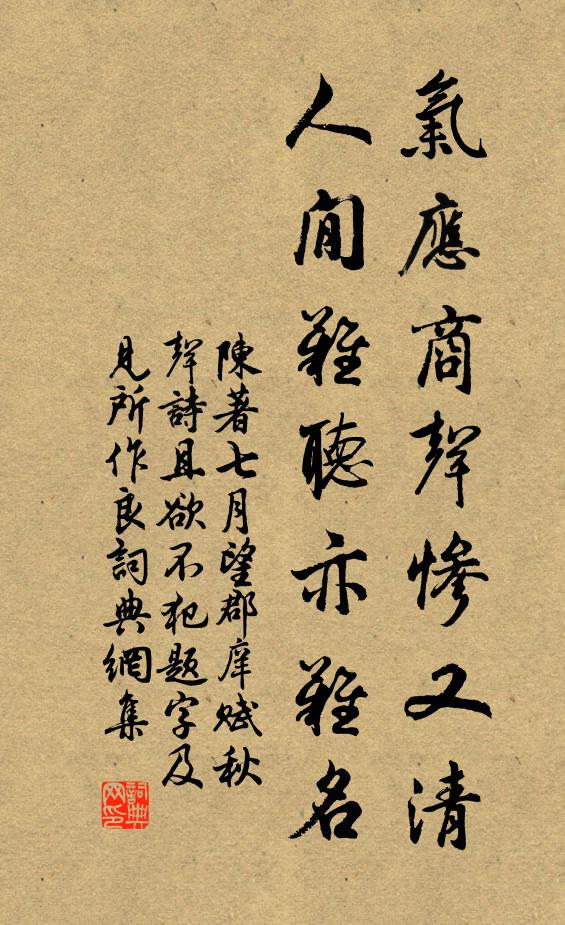 氣應商聲慘又清
人間難聽亦難名
陳著七月望郡庠賦秋
聲詩且欲不犯題字及
見所作良詞典網集
詞典網印